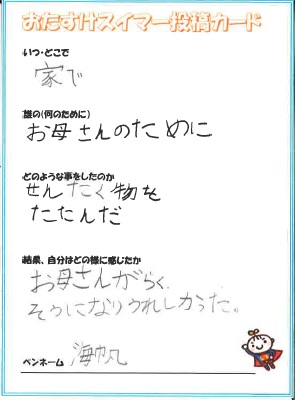 おたすけスイマー投稿カード
いつ・どこで
家で
誰の(何のために)
お母さんのために
どのような事をしたのか
せんたく物を
たたんだ
結果、自分はどの様に感じたか
お母さんがらく
そうになりうれしかった。
ペンネーム 海帆